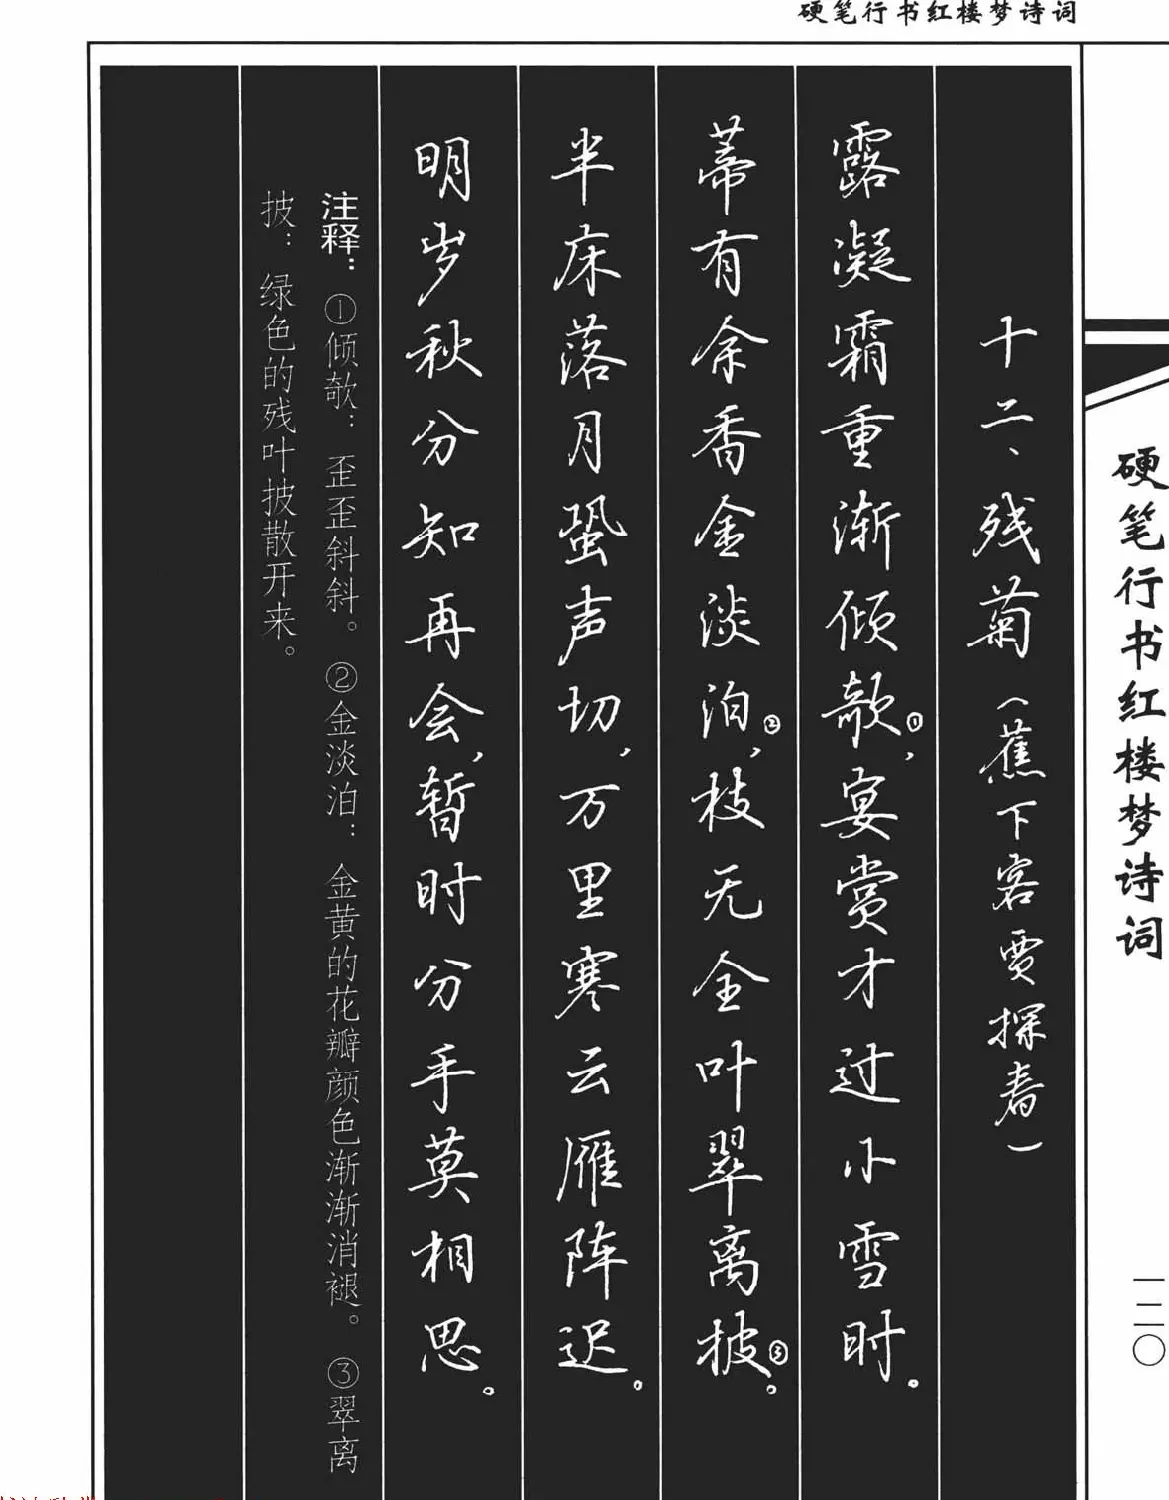 硬笔行书红楼梦诗词
硬笔行书红楼梦诗词
一二〇
十二、残菊（蕉下客贾探春）
露凝霜重渐倾欹①，宴赏才过小雪时。
蒂有余香金淡泊②，枝无全叶翠离披③。
半床落月蛩声切，万里寒云雁阵迟。
明岁秋分知再会，暂时分手莫相思。
注释：①倾欹：歪歪斜斜。②金淡泊：金黄的花瓣颜色渐渐消褪。③翠离
披：绿色的残叶披散开来。